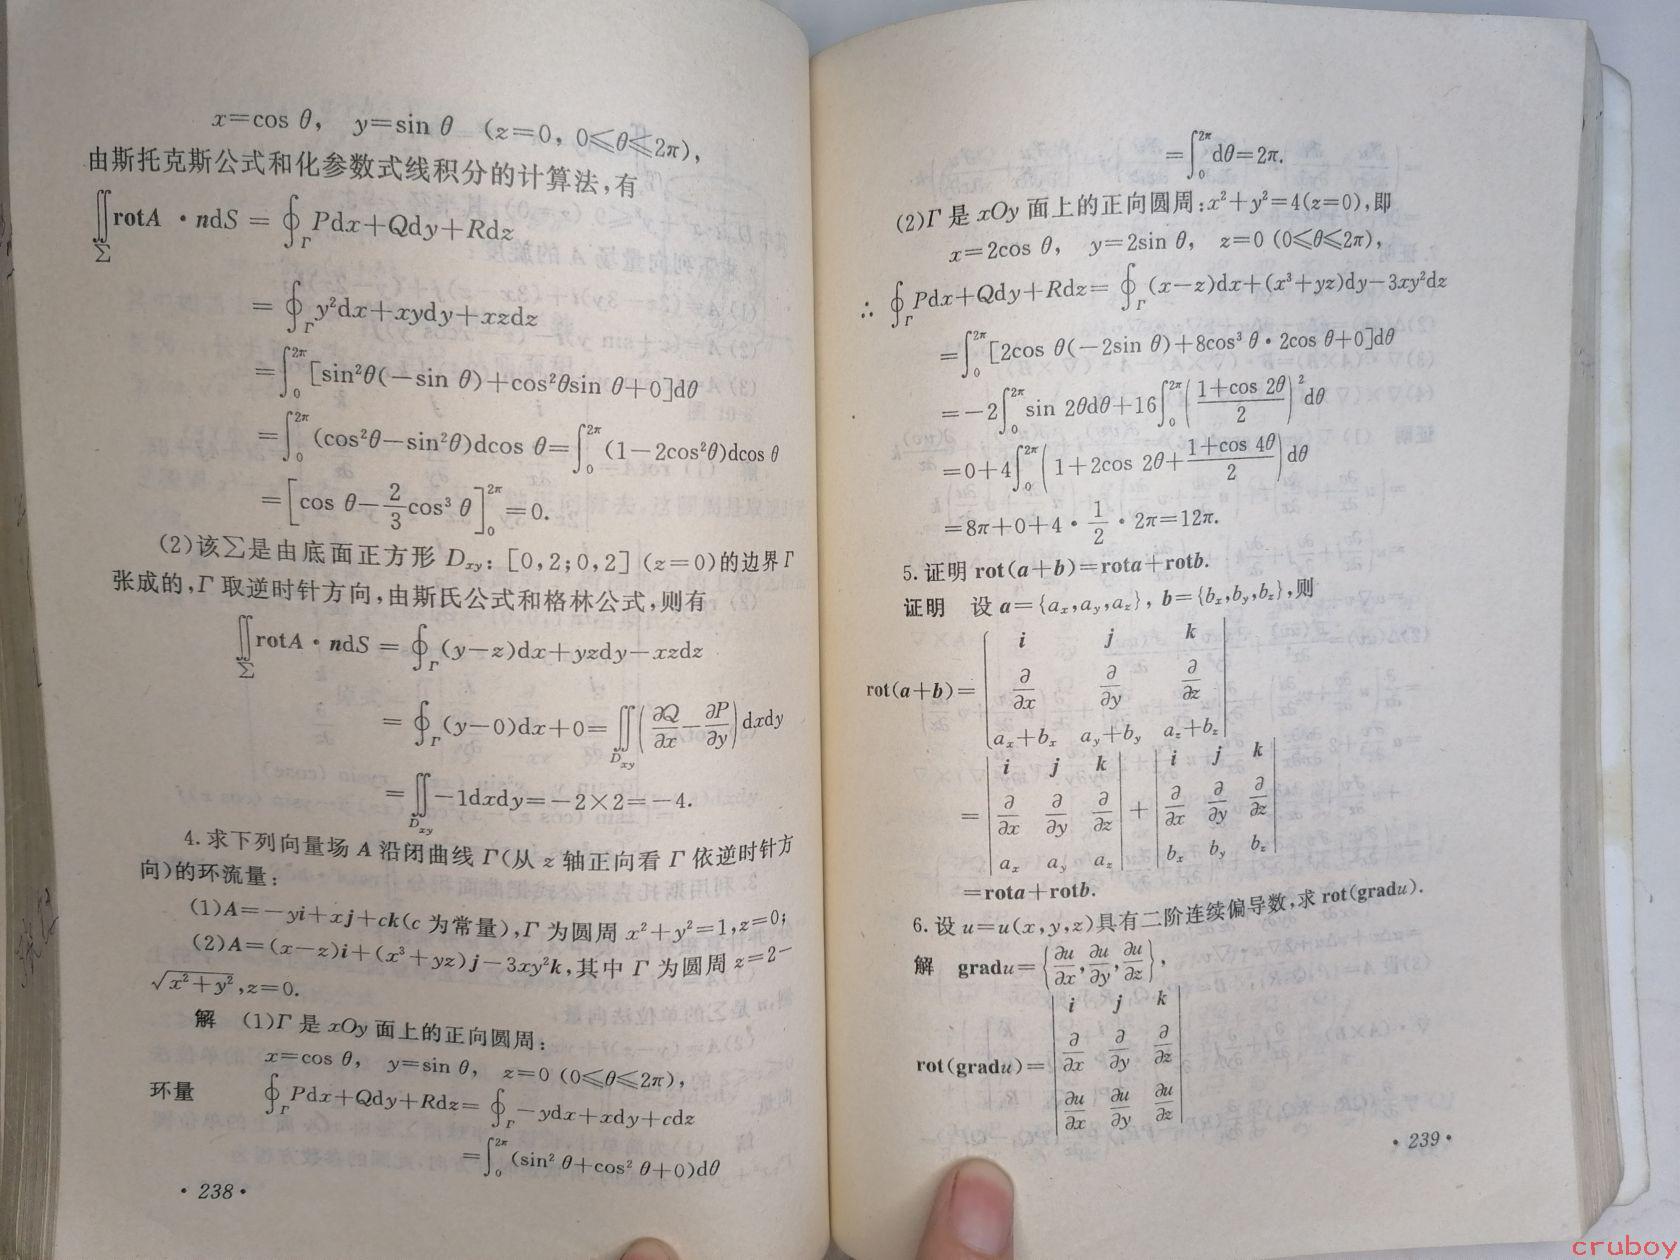 x=cos θ, y=sin θ (z=0, 0≤θ≤2π),
由斯托克斯公式和化参数式线积分的计算法,有
∬_Σ rotA · ndS = ∮_Γ Pdx+Qdy+Rdz
= ∮_Γ y²dx+xydy+xzdz
=∫₀^{2π} [sin²θ(−sin θ)+cos²θsin θ+0]dθ
=∫₀^{2π} (cos²θ−sin²θ)dcos θ=∫₀^{2π} (1−2cos²θ)dcos θ
=[cos θ−2/3 cos³ θ]₀^{2π}=0.
(2)该∑是由底面正方形 D_{xy}: [0,2;0,2] (z=0)的边界Γ
张成的,Γ取逆时针方向,由斯氏公式和格林公式,则有
∬_Σ rotA · ndS = ∮_Γ (y−z)dx+yzdy−xzdz
= ∮_Γ (y−0)dx+0=∬_{D_{xy}} (∂Q/∂x−∂P/∂y)dxdy
=∬_{D_{xy}} −1dxdy=−2×2=−4.
4. 求下列向量场 A 沿闭曲线 Γ(从 z 轴正向看 Γ 依逆时针方
向)的环流量:
(1)A=−yi+xj+ck(c 为常量),Γ 为圆周 x²+y²=1,z=0;
(2)A=(x−z)i+(x³+yz)j−3xy²k,其中 Γ 为圆周 z=2−
√(x²+y²),z=0.
解 (1)Γ 是 xOy 面上的正向圆周:
x=cos θ, y=sin θ, z=0 (0≤θ≤2π),
环量 ∮_Γ Pdx+Qdy+Rdz= ∮_Γ −ydx+xdy+cdz
=∫₀^{2π} (sin² θ+cos² θ+0)dθ
· 238 ·
=∫₀^{2π} dθ=2π.
(2)Γ 是 xOy 面上的正向圆周:x²+y²=4(z=0),即
x=2cos θ, y=2sin θ, z=0 (0≤θ≤2π),
∴ ∮_Γ Pdx+Qdy+Rdz= ∮_Γ (x−z)dx+(x³+yz)dy−3xy²dz
=∫₀^{2π} [2cos θ(−2sin θ)+8cos³ θ·2cos θ+0]dθ
=−2∫₀^{2π} sin 2θdθ+16∫₀^{2π} ((1+cos 2θ)/2)² dθ
=0+4∫₀^{2π} (1+2cos 2θ+(1+cos 4θ)/2)dθ
=8π+0+4·1/2·2π=12π.
5. 证明 rot(a+b)=rota+rotb.
证明 设 a={a_x,a_y,a_z}, b={b_x,b_y,b_z},则
i j k
rot(a+b)= | ∂/∂x ∂/∂y ∂/∂z |
a_x+b_x a_y+b_y a_z+b_z
i j k i j k
= | ∂/∂x ∂/∂y ∂/∂z | + | ∂/∂x ∂/∂y ∂/∂z |
a_x a_y a_z b_x b_y b_z
=rota+rotb.
6. 设 u=u(x,y,z)具有二阶连续偏导数,求 rot(gradu).
解 gradu={∂u/∂x,∂u/∂y,∂u/∂z},
i j k
rot(gradu)= | ∂/∂x ∂/∂y ∂/∂z |
∂u/∂x ∂u/∂y ∂u/∂z
· 239 ·
cruboy